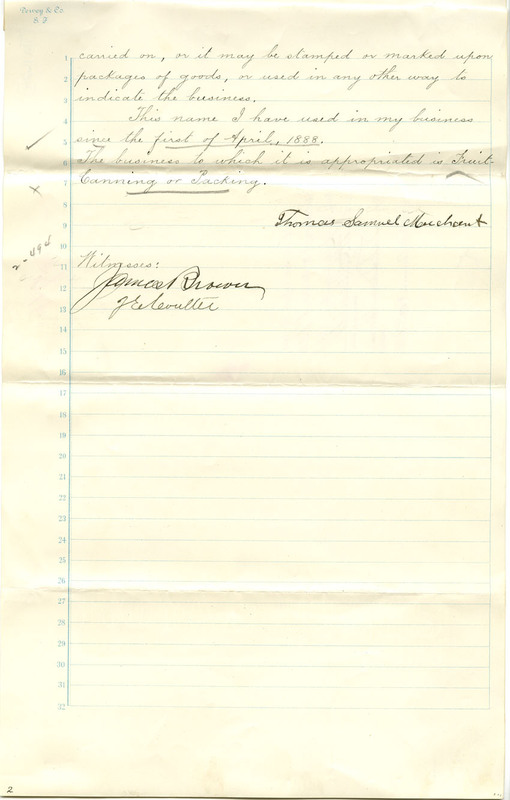 Dewey & Co.
S F
carried on, or it may be stamped or marked upon
packages of goods, or used in any other way to
indicate the business.
This name I have used in my business
since the first of April, 1888.
The business to which it is appropriated is Fruit-
Canning or Packing.
Thomas Samuel Merchant
2-494
Witnesses:
James Brown
J E Coulter
1
2
3
4
5
6
7
8
9
10
11
12
13
14
15
16
17
18
19
20
21
22
23
24
25
26
27
28
29
30
31
32
2